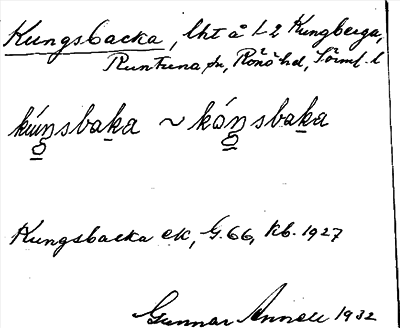 Kungsbacka, lht å L. Kungberga,
Runtuna sn, Rönö hd, Sörml. l
kúngsbaka ~ kóngsbaka
Kungsbacka ek, G. 66, kb. 1927
Gunnar Annell 1932